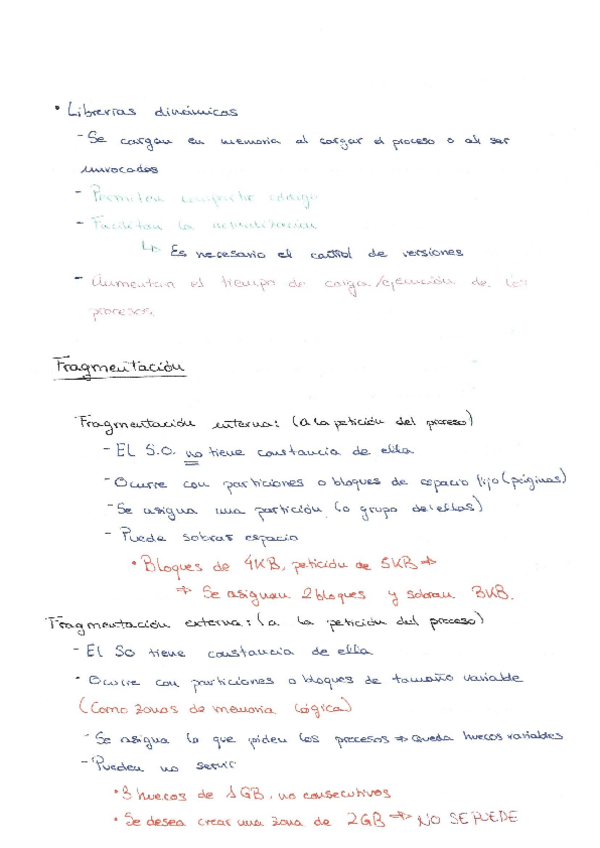 • Librerías dinámicas
- Se cargan en memoria al cargar el proceso o al ser
invocados
- Permiten compartir código
- Facilitan la actualización
↳ Es necesario el control de versiones
- Aumentan el tiempo de carga/ejecución de los
procesos.
Fragmentación
Fragmentación interna: (a la petición del proceso)
- EL S.O. no tiene constancia de ella
- Ocurre con particiones o bloques de espacio fijo (páginas)
- Se asigna una partición (o grupo de ellas)
- Puede sobrar espacio
• Bloques de 4KB, petición de 5KB ⇒
⇒ Se asignan 2 bloques y sobran 3KB.
Fragmentación externa: (a la petición del proceso)
- El SO tiene constancia de ella
- Ocurre con particiones o bloques de tamaño variable
(Como zonas de memoria lógica)
- Se asigna lo que piden los procesos ⇒ Queda huecos variables
- Pueden no servir
• 3 huecos de 1GB, no consecutivos
• Se desea crear una zona de 2GB ⇒ NO SE PUEDE